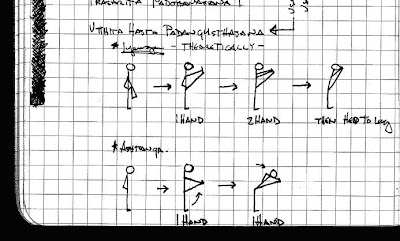 UTHITA HASTA PADANGUSTHASANA
* Iyengar - THEORETICALLY -
1 HAND
2 HAND
THEN HEAD TO LEG
* ASHTANGA.
1 HAND
1 HAND